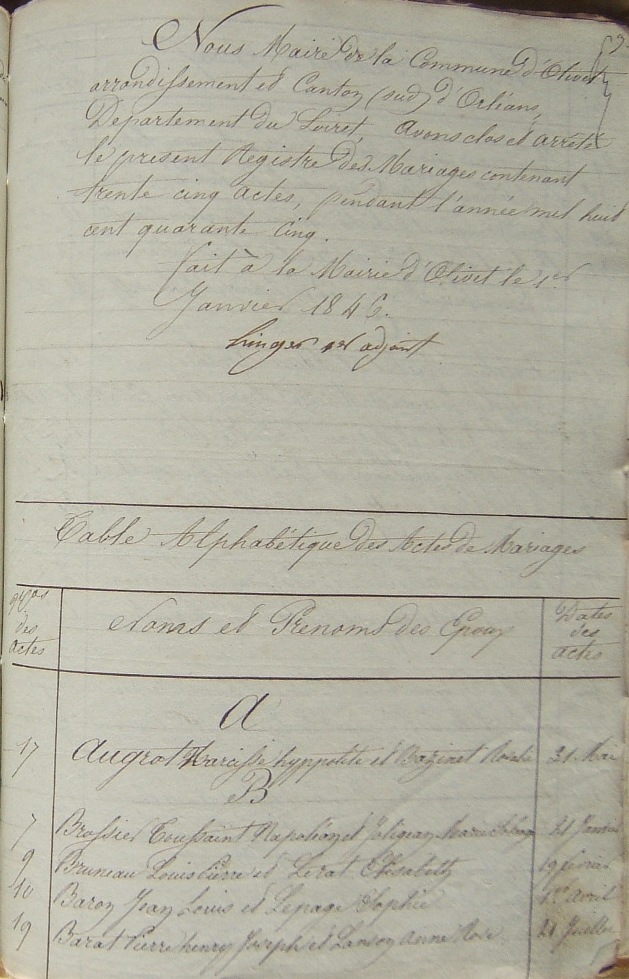 Nous Maire de la Commune d'Olivet
arrondissement et Canton (sud) d'Orléans,
Departement du Loiret, avons clos et arrêté
le present Registre des Mariages contenant
trente cinq actes, pendant l'année mil huit
cent quarante cinq.
fait à la Mairie d'Olivet le 1er
Janvier 1846.
1er adjoint
Table Alphabétique des Actes de Mariages
Nos des actes
Noms et Prenoms des Epoux
Dates des actes
A
17 Augrot Narcisse hyppolite et Bazinet Rosalie 31 Mai
B
7 Brossier Toussaint Napoléon et Marie 21 Janvier
9 Bruneau Louis Pierre et Lerat Elisabeth 19 février
10 Baron Jean Louis et Lepage Sophie 1er avril
19 Barat Pierre henry Joseph et Lanson Anne Rose 21 Juillet